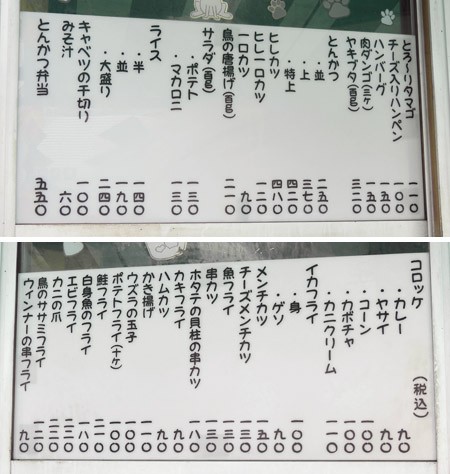 とろ〜りタマゴ 一一〇
チーズ入りハンペン 一〇〇
ハンバーグ 一五〇
肉ダンゴ(三ヶ) 一五〇
ヤキブタ(百g) 三二〇
とんかつ
・並 二五〇
・上 三七〇
・特上 四二〇
ヒレカツ 四八〇
ヒレ一口カツ 一二〇
一口カツ 九〇
鳥の唐揚げ(百g) 二一〇
サラダ(百g)
・ポテト 一三〇
・マカロニ 一三〇
ライス
・半 一四〇
・並 一九〇
・大盛り 二四〇
キャベツの千切り 一〇〇
みそ汁 六〇
とんかつ弁当 五五〇
コロッケ (税込)
・カレー 九〇
・ヤサイ 九〇
・コーン 一〇〇
・カボチャ 一〇〇
・カニクリーム 一一〇
イカフライ
・身 一〇〇
・ゲソ 九〇
メンチカツ 一五〇
チーズメンチカツ 一三〇
魚フライ 一三〇
串カツ 一三〇
ホタテの貝柱の串カツ 一八〇
カキフライ 九〇
ハムカツ 九〇
かき揚げ 一〇〇
ウズラの玉子 一〇〇
ポテトフライ(十ヶ) 一〇〇
鮭フライ 二一〇
白身魚のフライ 一八〇
エビフライ 二二〇
カニの爪 二二〇
鳥のササミフライ 一二〇
ウィンナーの串フライ 九〇